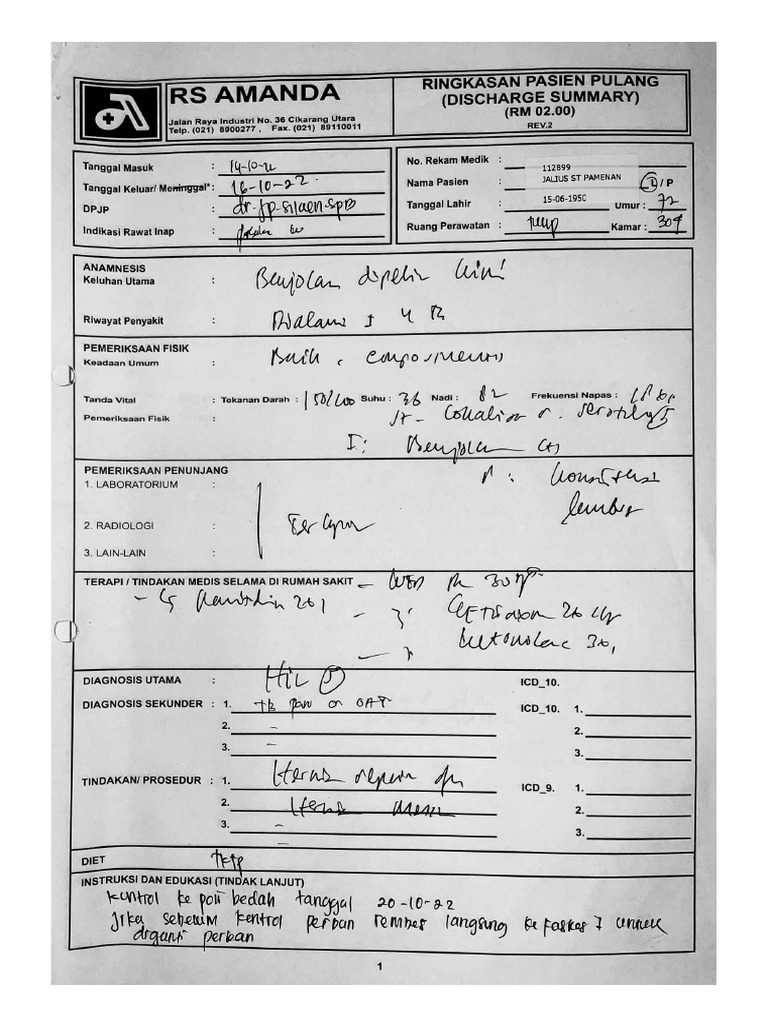 RS AMANDA
Jalan Raya Industri No. 36 Cikarang Utara
Telp. (021) 8900277 , Fax. (021) 89110011
RINGKASAN PASIEN PULANG
(DISCHARGE SUMMARY)
(RM 02.00)
REV.2
Tanggal Masuk : 14-10-22
Tanggal Keluar/ Meninggal* : 16-10-22.
DPJP : dr. jp. silaen. SpB
Indikasi Rawat Inap :
No. Rekam Medik : 112899
Nama Pasien : JALIUS ST PAMENAN L / P
Tanggal Lahir : 15-06-1950 Umur : 72
Ruang Perawatan : Kamar : 304
ANAMNESIS
Keluhan Utama : Benjolan dipelir kiri
Riwayat Penyakit : Dialami ±
PEMERIKSAAN FISIK
Keadaan Umum : Baik, composmentis
Tanda Vital : Tekanan Darah : 150/100 Suhu : 36 Nadi : 82 Frekuensi Napas : 18
Pemeriksaan Fisik : St. Lokalis
I: Benjolan (+)
PEMERIKSAAN PENUNJANG
P: konsistensi
1. LABORATORIUM :
2. RADIOLOGI :
3. LAIN-LAIN :
Terlampir
TERAPI / TINDAKAN MEDIS SELAMA DI RUMAH SAKIT -
- Ranitidin 2x1 - Ceftriaxon
- ketorolac 3x1
DIAGNOSIS UTAMA : HIL ICD_10.
DIAGNOSIS SEKUNDER : 1. TB paru on OAT ICD_10. 1.
2. - 2.
3. - 3.
TINDAKAN/ PROSEDUR : 1. Hernia repair ICD_9. 1.
2. Hernia 2.
3. - 3.
DIET TKTP
INSTRUKSI DAN EDUKASI (TINDAK LANJUT)
kontrol ke poli bedah tanggal 20-10-22
Jika sebelum kontrol perban rembes langsung ke faskes 1 untuk
diganti perban
1